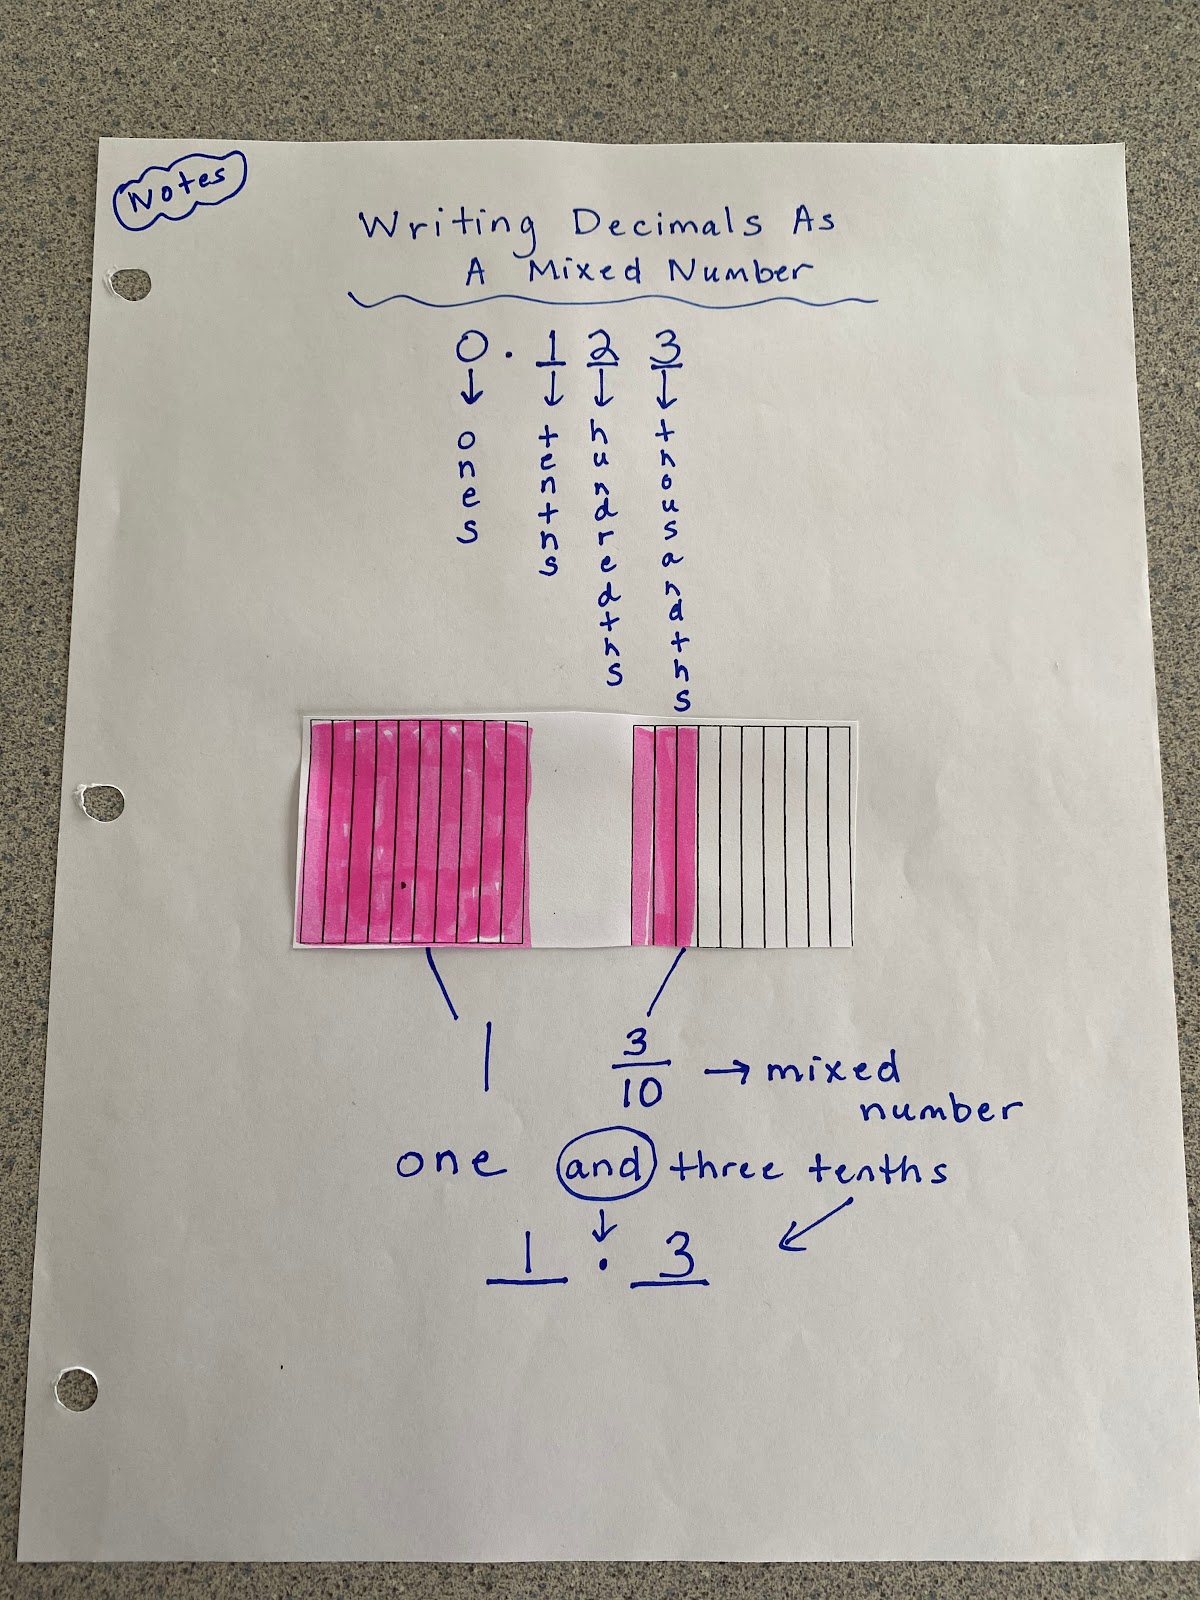 Notes
Writing Decimals As
A Mixed Number
0.123
ones
tenths
hundredths
thousandths
1 3/10 → mixed
number
one and three tenths
1.3